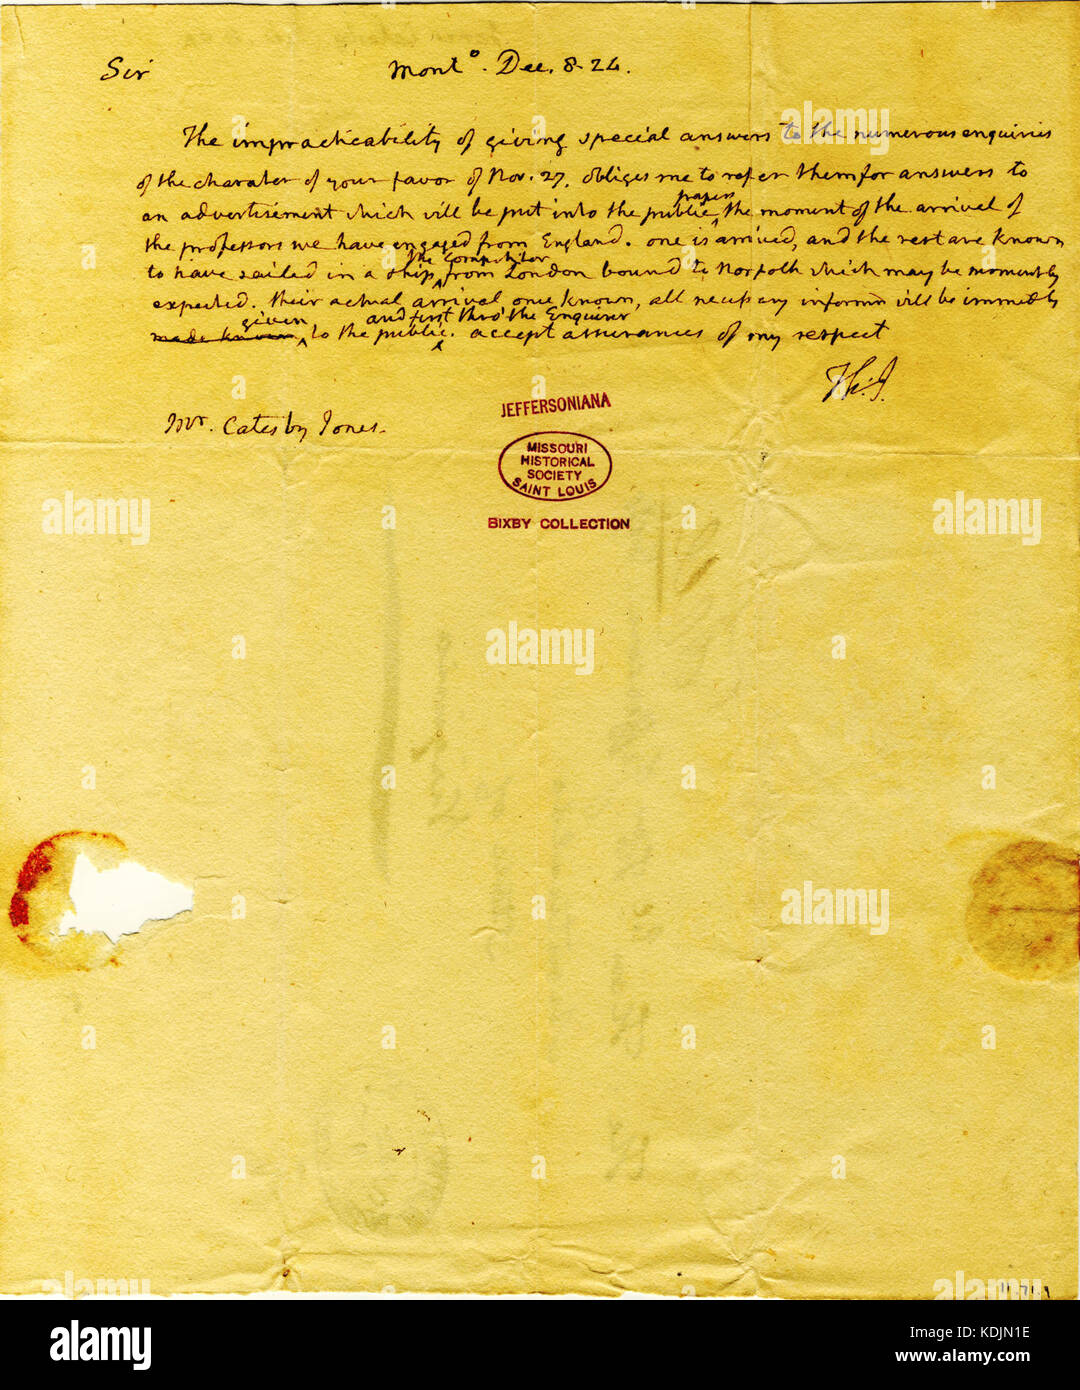 Sir Mont.o Dec. 8. 24.
The impracticability of giving special answers to the numerous enquiries
of the charater of your favor of Nov. 27. obliges me to refer them for answers to
an advertisement which will be put into the public papers the moment of the arrival of
the professors we have engaged from England. one is arrived, and the rest are known
to have sailed in a ship, the Competitor from London bound to Norfolk which may be momently
expected. their actual arrival once known, all necessary informn will be immedly
made known given to the public. and first thro' the Enquirer accept assurances of my respect
Th: J.
Mr. Catesby Jones.
JEFFERSONIANA
MISSOURI
HISTORICAL
SOCIETY
SAINT LOUIS
BIXBY COLLECTION
11.71.1
alamy
Image ID: KDJN1E
www.alamy.com